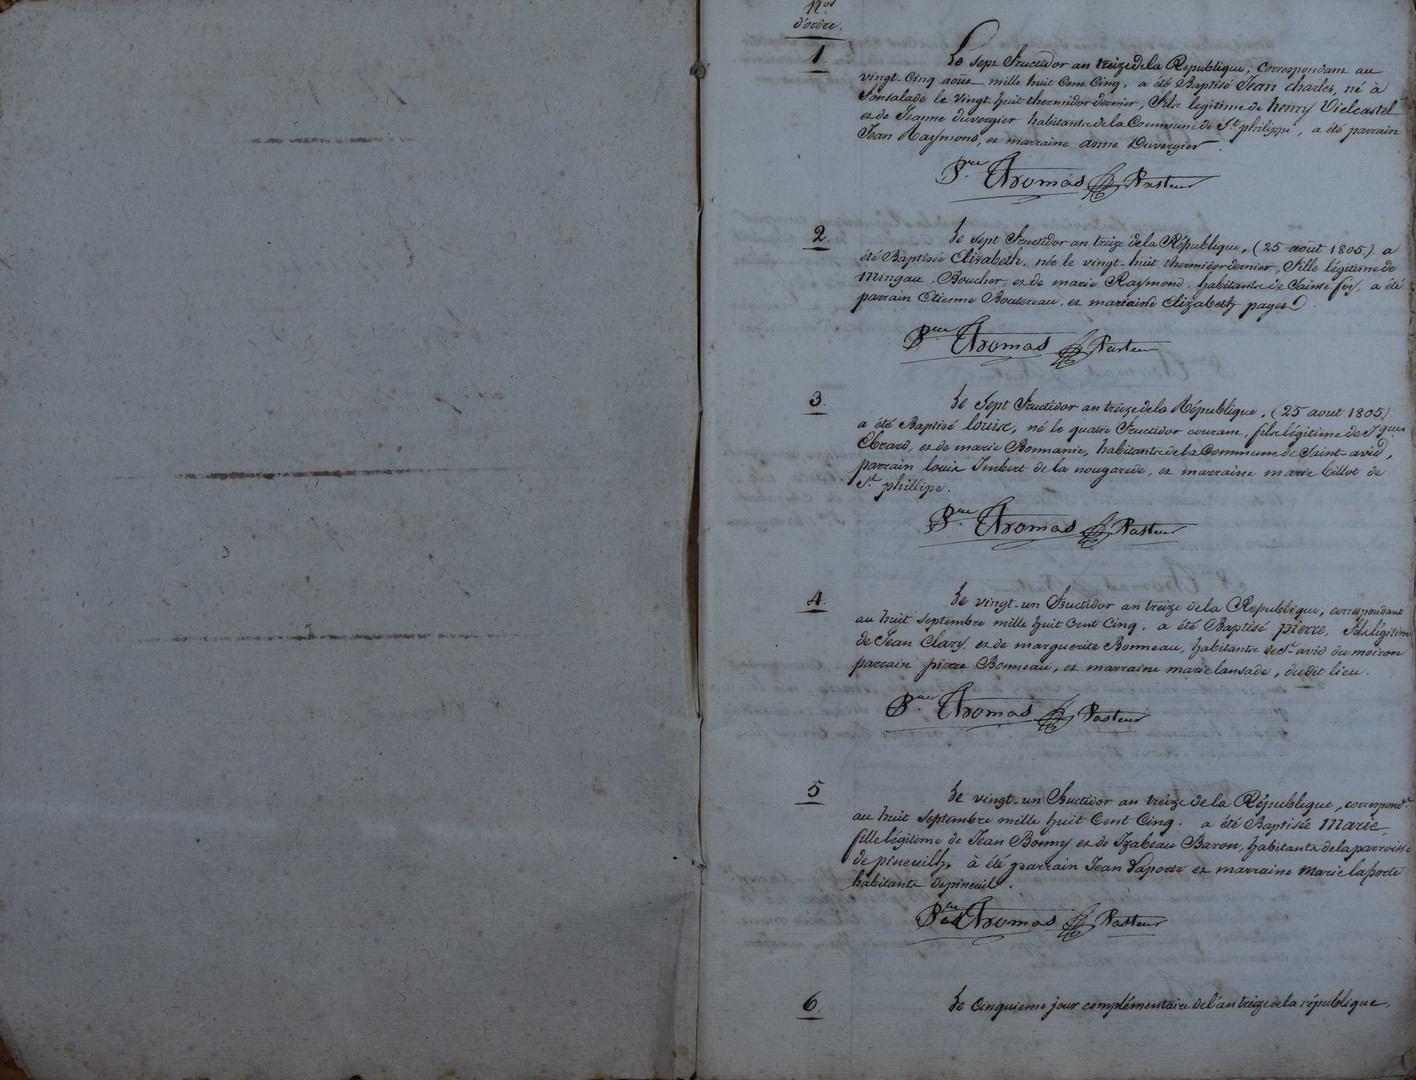 Nos
d'ordre.
1
Le sept fructidor an treize de la République, correspondant au
vingt-Cinq août mille huit Cent Cinq, a été Baptisé Jean Charles, né à
Fonsalade le vingt huit thermidor dernier, fils légitime de henry Vielcastel
et de Jeanne duvergier habitants de la Commune de St philippe, a été parrain
Jean Raymond, et marraine anne Duvergier.
Pre Thomas Pasteur
2
Le sept fructidor an treize de la République, (25 août 1805) a
été Baptisée Elizabeth, née le vingt-huit thermidor dernier, fille légitime de
Mingau Boucher, et de marie Raymond, habitants de Sainte foy, a été
parrain Etienne Boutereau, et marraine Elizabeth pages.
Pre Thomas Pasteur
3
Le Sept fructidor an treize de la République, (25 aout 1805)
a été Baptisé louis, né le quatre fructidor courant, fils légitime de Jques
Ebrard, et de marie Bonnanie, habitants de la Commune de Saint-avid,
parrain louis Imbert de la nougarede, et marraine marie Billot de
St phillipe.
Pre Thomas Pasteur
4
Le vingt-un fructidor an treize de la République, correspondant
au huit septembre mille huit Cent Cinq, a été Baptisé pierre, fils légitime
de Jean Clary, et de marguerite Bonneau, habitants de St avid du moiron
parrain pierre Bonneau, et marraine marie lansade, dudit lieu.
Pre Thomas Pasteur
5
Le vingt-un fructidor an treize de la République, correspondt
au huit septembre mille huit Cent Cinq, a été Baptisée Marie,
fille légitime de Jean Bonny et de Izabeau Baron, habitants de la parroisse
de pineuilh, à été parrain Jean Laporte et marraine Marie laporte
habitants de pineuil.
Pre Thomas Pasteur
6
Le Cinquieme jour complémentaire de l'an treize de la république,